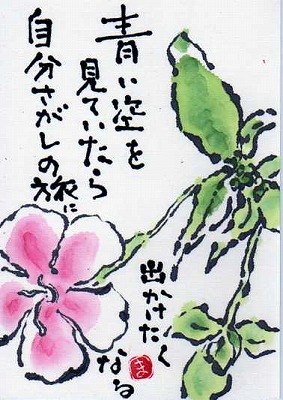 青い空を
見ていたら
自分さがしの旅に
出かけたく
なる
さ